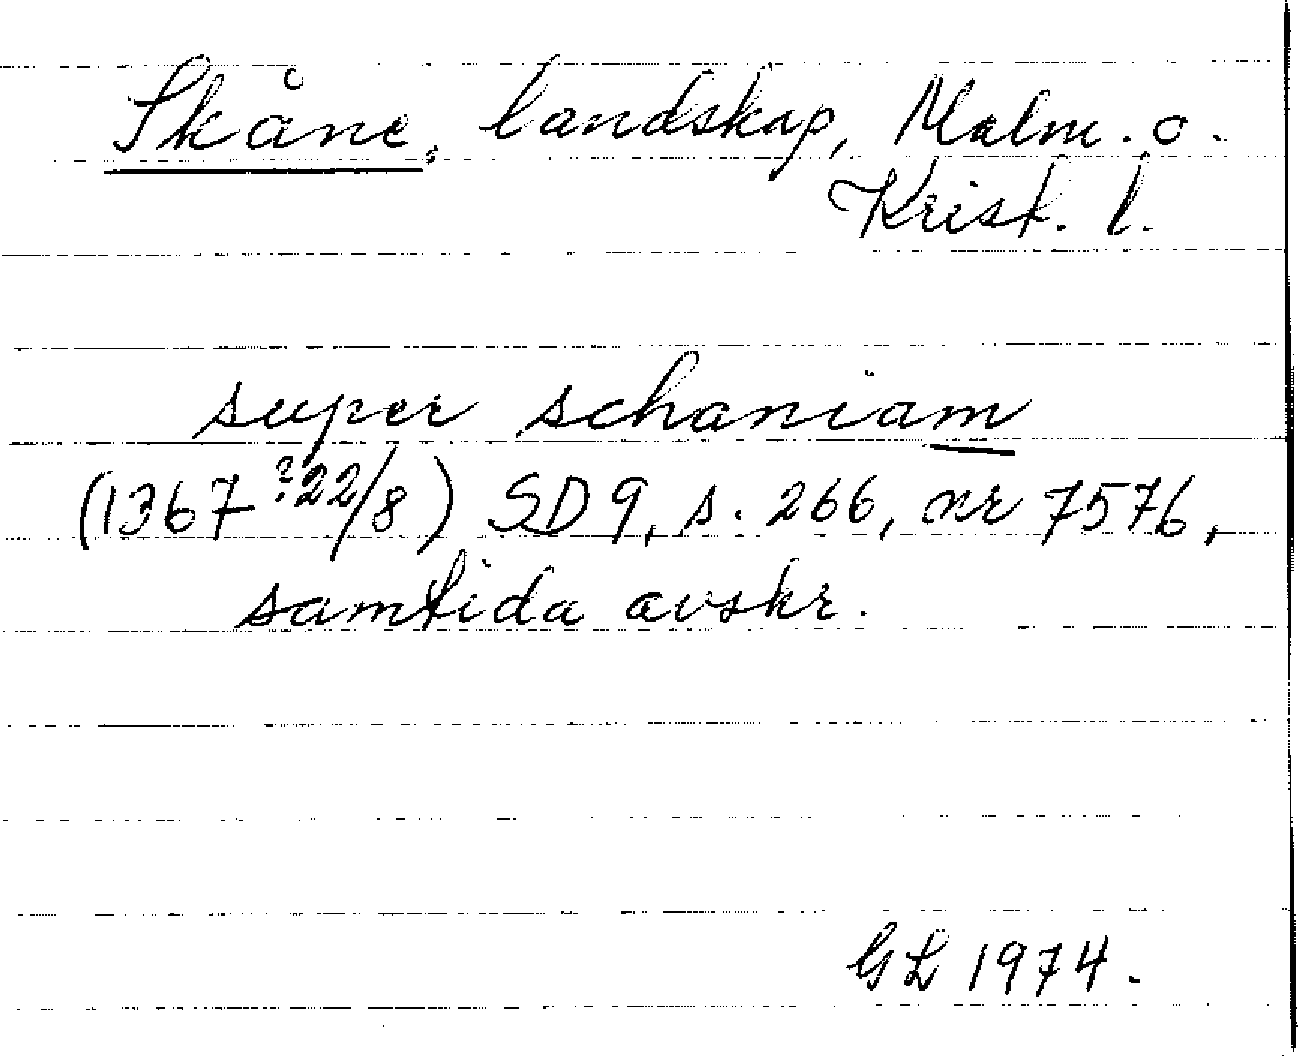 Skåne, landskap, Malm. o.
Krist. l.
super schaniam
(1367 ?22/8) SD 9, s. 266, nr 7576,
samtida avskr.
GL 1974.